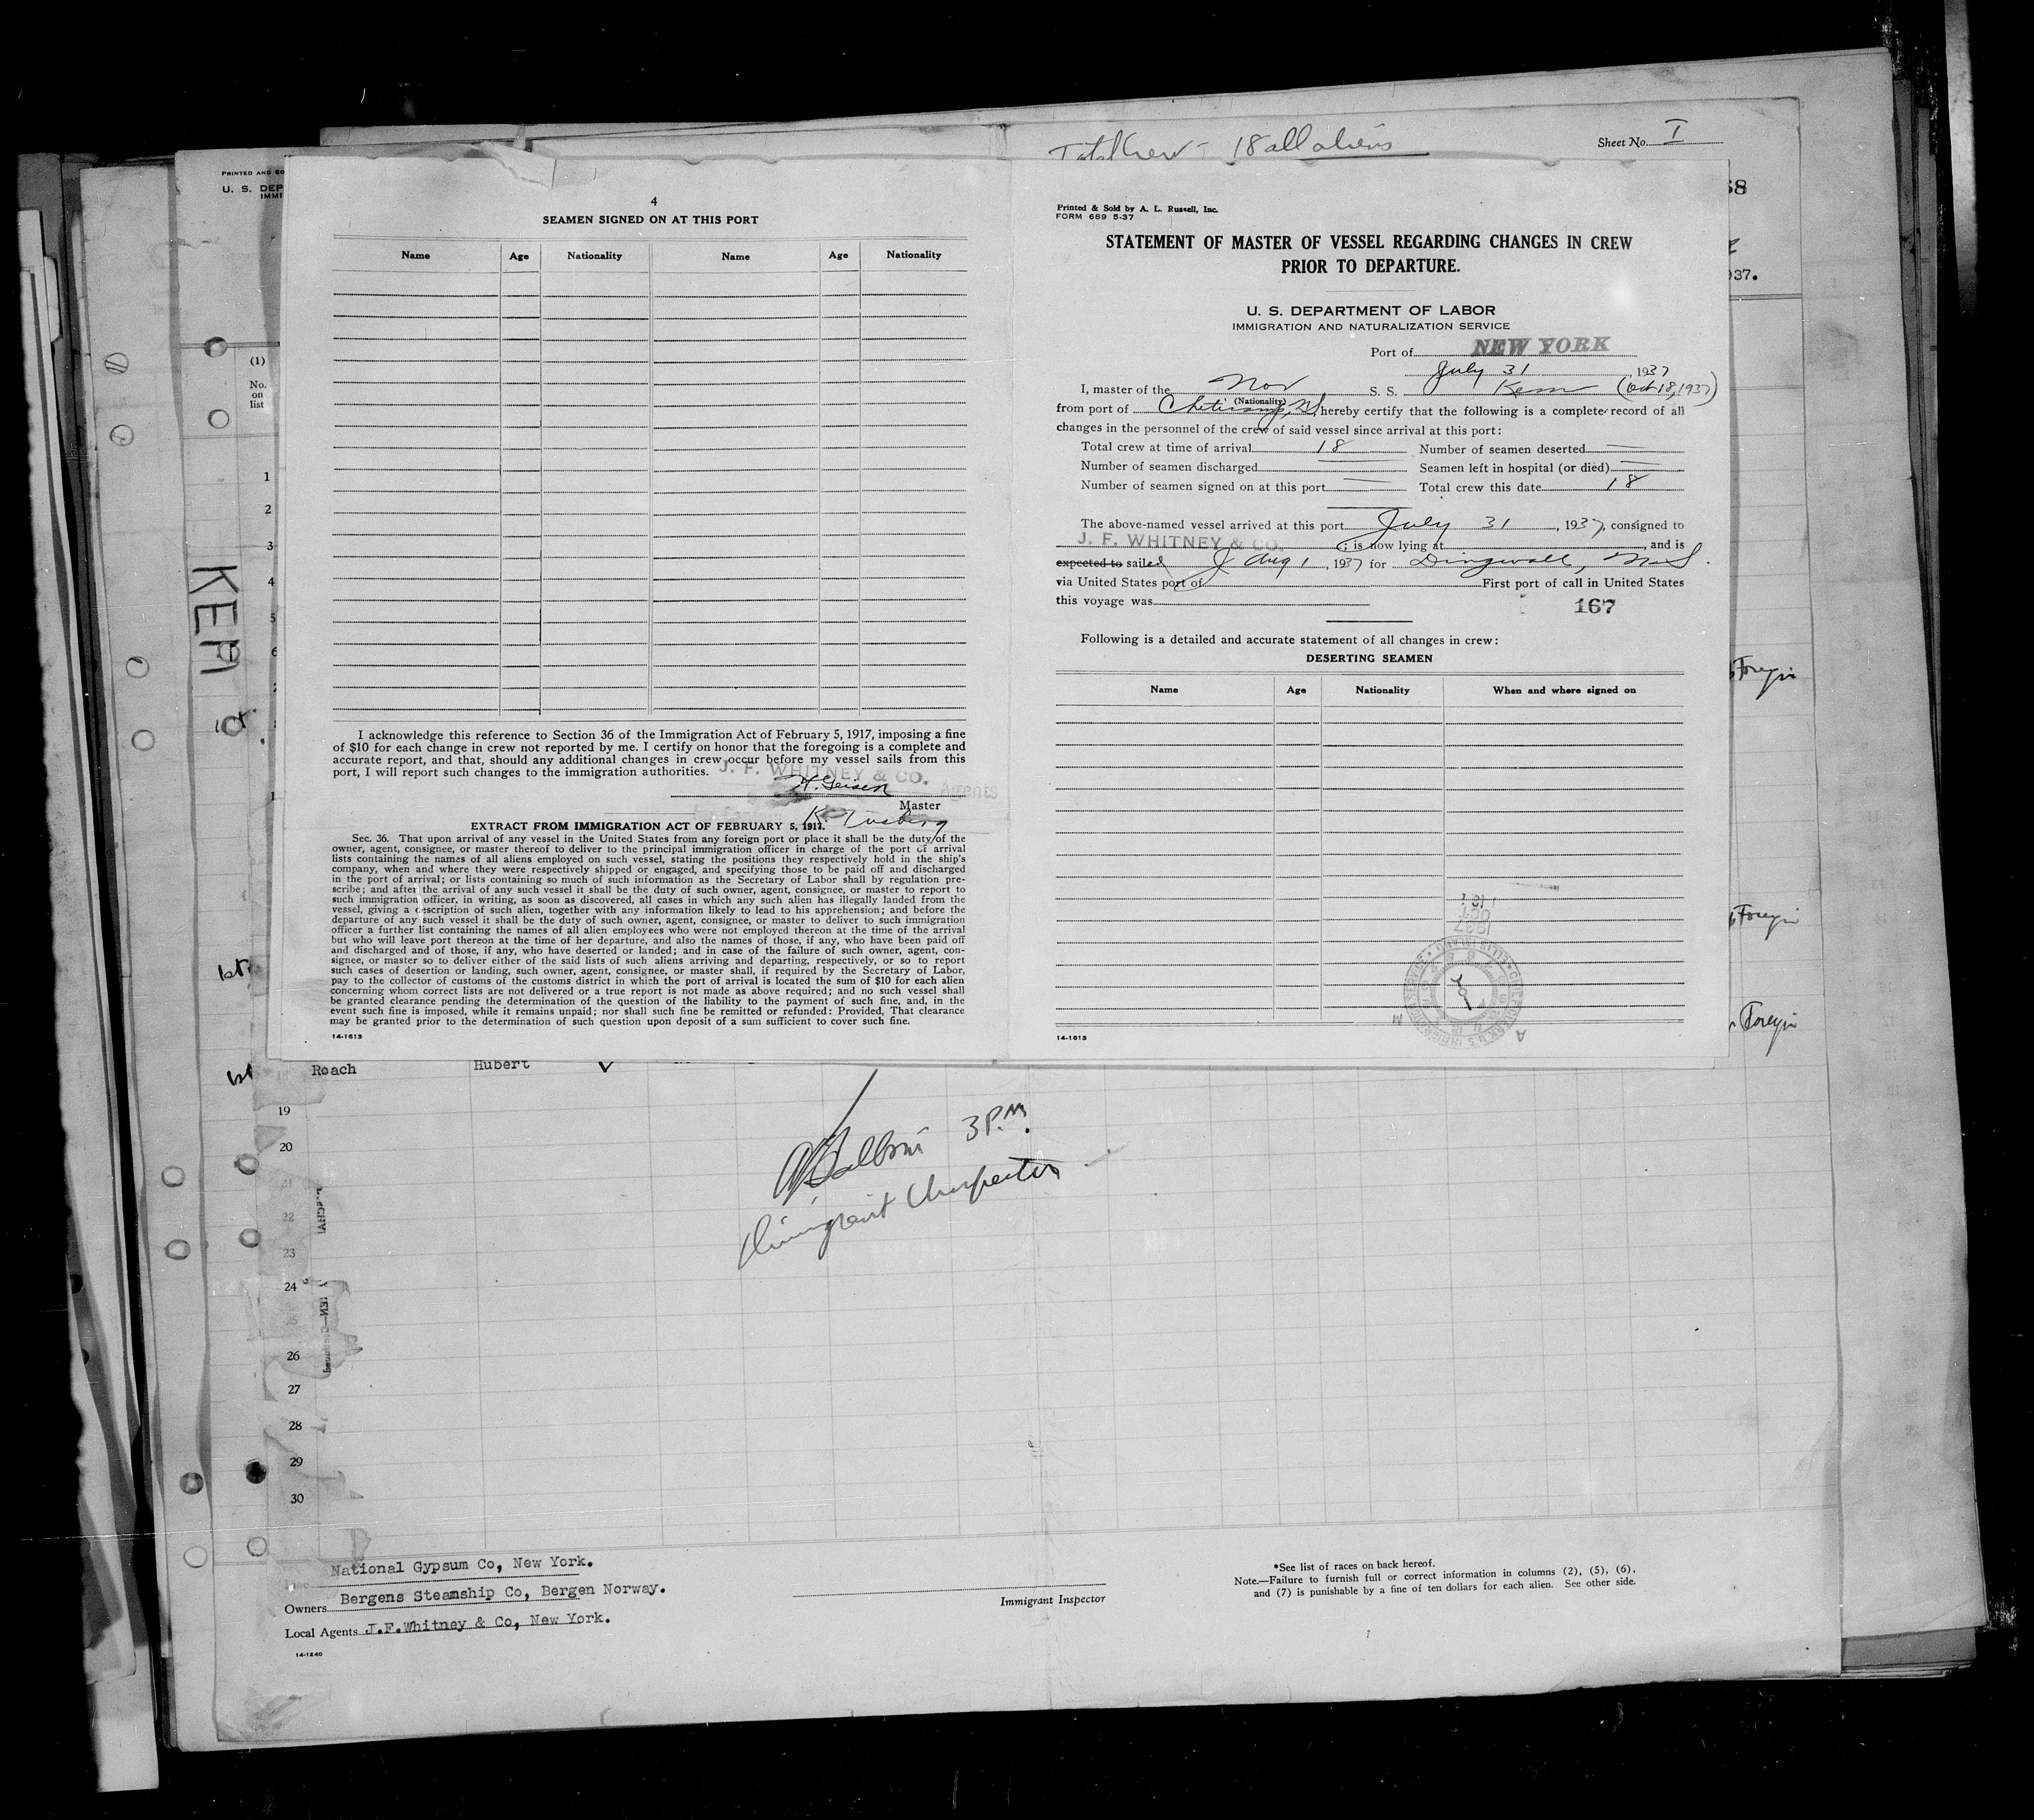 Total Crew - 18 all aliens
Sheet No. I
68
PRINTED AND SO
U. S. DEP
IMMI
37.
(1)
No.
on
list
1
2
3
4
5
6
KEM
4
SEAMEN SIGNED ON AT THIS PORT
Name Age Nationality Name Age Nationality
I acknowledge this reference to Section 36 of the Immigration Act of February 5, 1917, imposing a fine
of $10 for each change in crew not reported by me. I certify on honor that the foregoing is a complete and
accurate report, and that, should any additional changes in crew occur before my vessel sails from this
port, I will report such changes to the immigration authorities.
J. F. WHITNEY & CO.
Agents
Master
EXTRACT FROM IMMIGRATION ACT OF FEBRUARY 5, 1917.
Sec. 36. That upon arrival of any vessel in the United States from any foreign port or place it shall be the duty of the
owner, agent, consignee, or master thereof to deliver to the principal immigration officer in charge of the port of arrival
lists containing the names of all aliens employed on such vessel, stating the positions they respectively hold in the ship's
company, when and where they were respectively shipped or engaged, and specifying those to be paid off and discharged
in the port of arrival; or lists containing so much of such information as the Secretary of Labor shall by regulation pre-
scribe; and after the arrival of any such vessel it shall be the duty of such owner, agent, consignee, or master to report to
such immigration officer, in writing, as soon as discovered, all cases in which any such alien has illegally landed from the
vessel, giving a description of such alien, together with any information likely to lead to his apprehension; and before the
departure of any such vessel it shall be the duty of such owner, agent, consignee, or master to deliver to such immigration
officer a further list containing the names of all alien employees who were not employed thereon at the time of the arrival
but who will leave port thereon at the time of her departure, and also the names of those, if any, who have been paid off
and discharged and of those, if any, who have deserted or landed; and in case of the failure of such owner, agent, con-
signee, or master so to deliver either of the said lists of such aliens arriving and departing, respectively, or so to report
such cases of desertion or landing, such owner, agent, consignee, or master shall, if required by the Secretary of Labor,
pay to the collector of customs of the customs district in which the port of arrival is located the sum of $10 for each alien
concerning whom correct lists are not delivered or a true report is not made as above required; and no such vessel shall
be granted clearance pending the determination of the question of the liability to the payment of such fine, and, in the
event such fine is imposed, while it remains unpaid; nor shall such fine be remitted or refunded: Provided, That clearance
may be granted prior to the determination of such question upon deposit of a sum sufficient to cover such fine.
14-1613
Printed & Sold by A. L. Russell, Inc.
FORM 689 5-37
STATEMENT OF MASTER OF VESSEL REGARDING CHANGES IN CREW
PRIOR TO DEPARTURE.
U. S. DEPARTMENT OF LABOR
IMMIGRATION AND NATURALIZATION SERVICE
Port of NEW YORK
July 31, 1937
I, master of the Nor S. S. Kem (Oct 18, 1937)
(Nationality)
from port of Cheticamp, NS hereby certify that the following is a complete record of all
changes in the personnel of the crew of said vessel since arrival at this port:
Total crew at time of arrival 18 Number of seamen deserted
Number of seamen discharged Seamen left in hospital (or died)
Number of seamen signed on at this port Total crew this date 18
The above-named vessel arrived at this port July 31, 1937, consigned to
J. F. WHITNEY & CO. ; is now lying at , and is
expected to sailed Aug 1, 1937 for Dingwall, NS.
via United States port of First port of call in United States
this voyage was
167
Following is a detailed and accurate statement of all changes in crew:
DESERTING SEAMEN
Name Age Nationality When and where signed on
OCT
1937
14-1613
Foreign
Foreign
Foreign
Roach Hubert
19
20
21
22
23
24
26
27
28
29
30
3 P.M.
Immigrant Inspector
National Gypsum Co, New York.
Owners Bergens Steamship Co, Bergen Norway.
Local Agents J.F.Whitney & Co, New York.
14-1240
Immigrant Inspector
*See list of races on back hereof.
Note.—Failure to furnish full or correct information in columns (2), (5), (6),
and (7) is punishable by a fine of ten dollars for each alien. See other side.